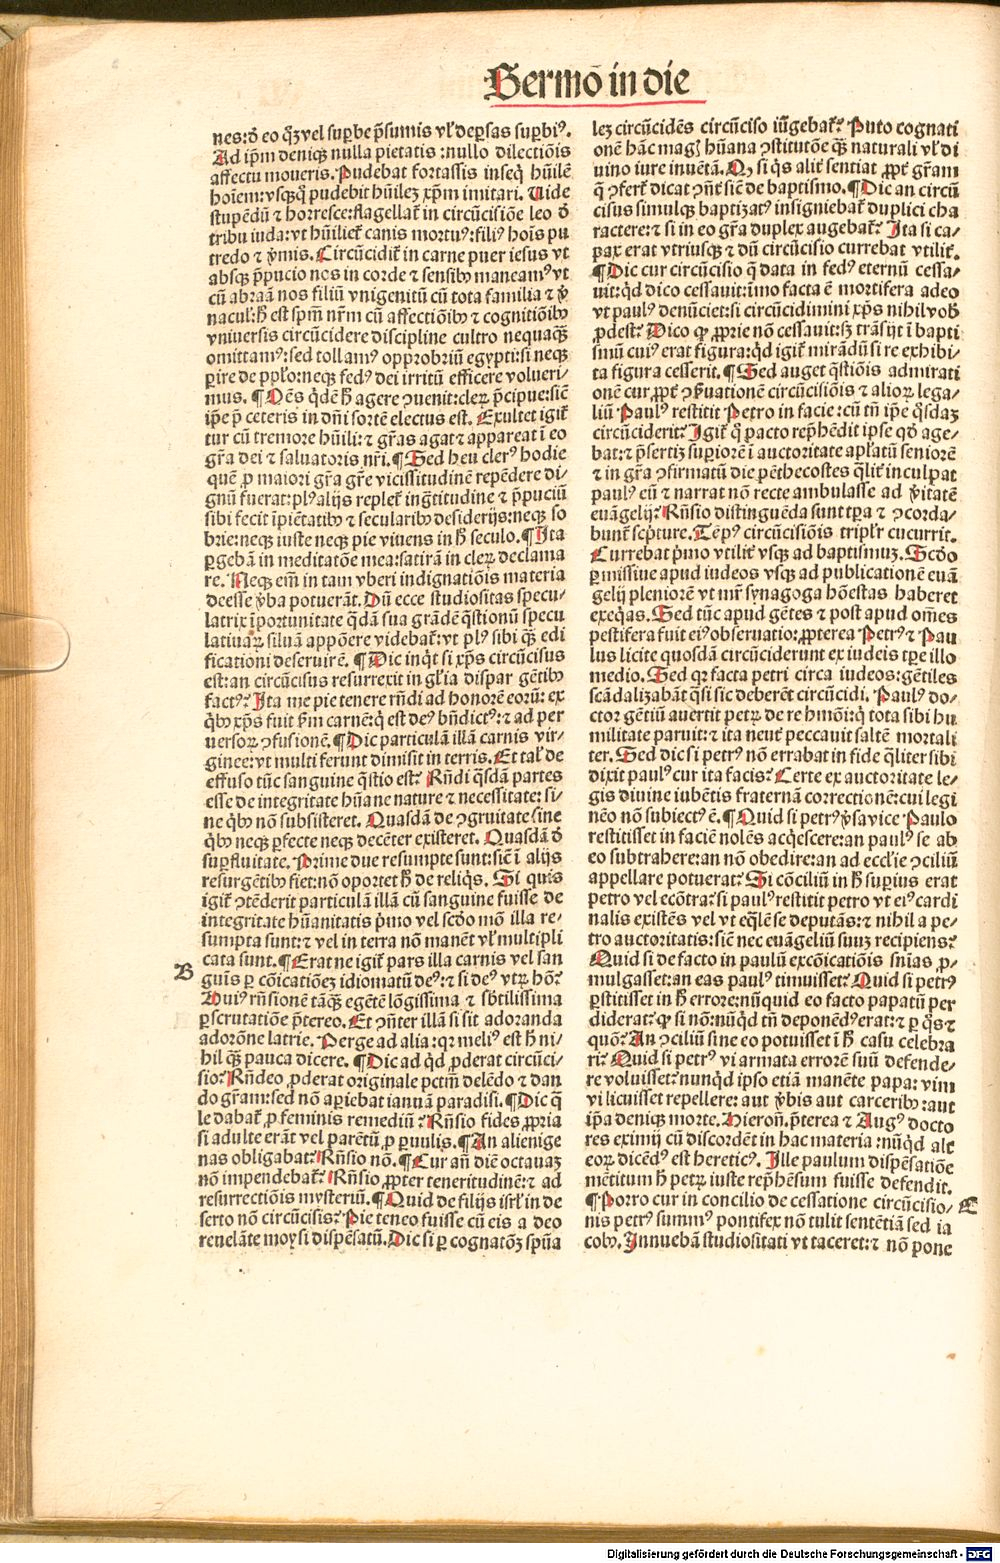 Sermō in die
nes: ꝺ eo q̄ꝫ vel suꝑbe p̄sumis vl' deꝑsas suꝑbiꝰ.
Ad ip̄m deniqꝫ nulla pietatis : nullo dilectiōis
affectu moueris. Pudebat fortassis inseq̄ hūilē
hoīem: vsqꝫq̄ pudebit hūilez xp̄m imitari. Uide
stupēdū ⁊ horresce: flagellat̄ in circūcisiōe leo ꝺ
tribu iuda: vt hūiliet̄ canis mortuꝰ: filiꝰ hoīs pu
tredo ⁊ v̄mis. Circūcidit̄ in carne puer iesus vt
absqꝫ p̄pucio nos in corde ⁊ sensibꝰ maneamꝰ vt
cū abraā nos filiū vnigenitū cū tota familia ⁊ v̄
nacul: h̄ est spm̄ nr̄m cū affectiōibꝰ ⁊ cognitiōibꝰ
vniuersis circūcidere discipline cultro nequaqꝫ
omittamꝰ: sed tollamꝰ opprobriū egypti: si neqꝫ
ꝑire de pplo: neqꝫ fedꝰ dei irritū efficere voluerí-
mus. ¶ Oēs q̄dē h̄ agere ꝯuenit: cleꝝ p̄cipue: siē
ip̄e p̄ ceteris in dn̄i sortē electus est. Exultet igit̄
tur cū tremore hūili: ⁊ gr̄as agat ⁊ appareat ī eo
gr̄a dei ⁊ saluatoris nr̄i. ¶ Sed heu clerꝰ hodie
quē ꝓ maiori gr̄a gr̄e vicissitudinē repēdere di-
gnū fuerat: plꝰ alijs replet̄ ingtitudine ⁊ p̄puciū
sibi fecit īpietatibꝰ ⁊ secularibꝰ desiderijs: neqꝫ so
brie: neqꝫ iuste neqꝫ pie viuens in h̄ seculo. ¶ Ita
ꝑgebā in meditatōe mea: satirā in cleꝝ declama
re. Neqꝫ em̄ in tam vberi indignatiōis materia
deesse v̄ba potuerāt. Dū ecce studiositas specu-
latrix īportunitate q̄dā sua grādē q̄stionū specu
latiuaꝝ siluā appōere videbat̄: vt plꝰ sibi qꝫ edi
ficationi deseruirē. ¶ Dic inq̇t si xp̄s circūcisus
est: an circūcisus resurrexit in gl'ia dispar gētibꝰ
factꝰ? Ita me pie tenere rn̄di ad honorē eorū: ex
q̇bꝰ xp̄s fuit ẜm carnē: q̇ est deꝰ bn̄dictꝰ: ⁊ ad per
uersoꝝ ꝯfusionē. ¶ Dic particulā illā carnis vir-
ginee: vt multi ferunt dimisit in terris. Et tal' de
effuso tūc sanguine q̄stio est? Rn̄di q̄sdā partes
esse de integritate hūane nature ⁊ necessitate: si-
ne q̇bꝰ nō subsisteret. Quasdā de ꝯgruitate sine
q̇bꝰ neqꝫ ꝑfecte neqꝫ decēter existeret. Quasdā ꝺ
suꝑfluitate. Prime due resumpte sunt: siē ī alijs
resurgētibꝰ fiet: nō oportet h̄ de reliq̇s. Si quis
igit̄ ꝯtēderit particulā illā cū sanguine fuisse de
integritate hūanitatis p̄mo vel scd̄o mō illa re-
sumpta sunt: ⁊ vel in terra nō manēt vl' multipli
cata sunt. ¶ Erat ne igit̄ pars illa carnis vel san
B
guīs ꝑ cōicatiōez idiomatū deꝰ: ⁊ si deꝰ vtꝝ hō?
Huiꝰ rn̄sionē tāqꝫ egētē lōgissima ⁊ sb̄tilissima
ꝑscrutatiōe p̄tereo. Et ꝯn̄ter illā si sit adoranda
adorōne latrie. Perge ad alia: qꝛ meliꝰ est h̄ ni-
hil qꝫ pauca dicere. ¶ Dic ad q̇d ꝓderat circūci-
sio? Rn̄deo ꝓderat originale pctm̄ delēdo ⁊ dan
do gr̄am: sed nō aꝑiebat ianuā paradisi. ¶ Dic q̄
le dabat̄ ꝓ feminis remediū? Rn̄sio fides ꝓpria
si adulte erāt vel parētū ꝓ ꝑuulis. ¶ An alienige
nas obligabat? Rn̄sio nō. ¶ Cur an̄ diē octauaꝫ
nō impendebat̄? Rn̄sio ꝓpter teneritudinē: ⁊ ad
resurrectiōis mysteriū. ¶ Quid de filijs isrl' in de
serto nō circūcisis? Pie teneo fuisse cū eis a deo
reuelāte moysi dispēsatū. Dic si ꝑ cognatōꝫ spūa
lez circūcidēs circūciso iūgebat̄? Puto cognati
onē hāc magꝭ hūana ꝯstitutōe qꝫ naturali vl' di
uino iure inuētā. Qꝫ si q̇s alit̄ sentiat ꝓpt̄ gr̄am
q̄ ꝯfert̄ dicat ꝯn̄t̄ siē de baptismo. ¶ Dic an circū
cisus simulqꝫ baptizatꝰ insigniebat̄ duplici cha
ractere: ⁊ si in eo gr̄a duplex augebat̄? Ita si ca-
pax erat vtriusqꝫ ⁊ dū circūcisio currebat vtilit̄.
¶ Dic cur circūcisio q̄ data in fedꝰ eternū cessa-
uit: q̇d dico cessauit: īmo facta ē mortifera adeo
vt paulꝰ denūciet: si circūcidimini xp̄s nihil vob̄
ꝓdest? Dico ꝙ ꝓprie nō cessauit: sꝫ trāsijt ī bapti
smū cuiꝰ erat figura: q̇d igit̄ mirādū si re exhibi-
ta figura cesserit. ¶ Sed auget q̄stiōis admirati
onē cur ꝓpt̄ ꝯẜuationē circūcisiōis ⁊ alioꝝ lega-
liū Paulꝰ restitit Petro in facie: cū tn̄ ip̄e q̄sdaꝫ
circūciderit? Igit̄ q̄ pacto rep̄hēdit ipse qd̄ age-
bat: ⁊ p̄sertiꝫ suꝑiorē ī auctoritate apl'atū seniorē
⁊ in gr̄a ꝯfirmatū die pēthecostes q̄lit̄ inculpat
paulꝰ eū ⁊ narrat nō recte ambulasse ad v̄itatē
euāgelij? Rn̄sio distinguēda sunt tꝑa ⁊ ꝯcorda-
bunt̄ sc̄pture. Tēpꝰ circūcisiōis tripl'r cucurrit.
Currebat p̄mo vtilit̄ vsqꝫ ad baptismuꝫ. Scd̄o
ꝑmissiue apud iudeos vsqꝫ ad publicationē euā
gelij pleniorē vt mr̄ synagoga hōestas haberet
exeq̇as. Sed tūc apud gētes ⁊ post apud om̄es
pestifera fuit eiꝰ obseruatio: ꝓpterea Petrꝰ ⁊ Pau
lus licite quosdā circūciderunt ex iudeis tꝑe illo
medio. Sed qꝛ facta petri circa iudeos: gētiles
scādalizabāt q̄si sic deberēt circūcidi. Paulꝰ do-
ctor gētiū auertit petꝝ de re hmōi: q̇ tota sibi hu
militate paruit: ⁊ ita neut̄ peccauit saltē mortali
ter. Sed dic si petrꝰ nō errabat in fide q̄liter sibi
dixit paulꝰ cur ita facis? Certe ex auctoritate le-
gis diuine iubētis fraternā correctionē: cui legi
nēo nō subiectꝰ ē. ¶ Quid si petrꝰ v̄sa vice Paulo
restitisset in faciē nolēs acq̇escere: an paulꝰ se ab
eo subtrahere: an nō obedire: an ad eccl'ie ꝯciliū
appellare potuerat? Si cōciliū in h̄ superius erat
petro vel ecōtra: si paulꝰ restitit petro vt eiꝰ cardi
nalis existēs vel vt eq̄lē se deputās: ⁊ nihil a pe-
tro auctoritatis: siē nec euāgeliū suuꝫ recipiens?
Quid si de facto in paulū excōicatiōis sn̄ias ꝓ-
mulgasset: an eas paulꝰ timuisset? Quid si petrꝰ
ꝑstitisset in h̄ errore: nūquid eo facto papatū per
diderat: ꝙ si nō: nūq̇d tn̄ deponēdꝰ erat: ⁊ ꝑ q̇s ⁊
quō? An ꝯciliū sine eo potuisset ī h̄ casu celebra
ri? Quid si petrꝰ vi armata errorē suū defende-
re voluisset: nunq̇d ipso etiā manēte papa: vim
vi licuisset repellere: aut v̄bis aut carceribꝰ: aut
ip̄a deniqꝫ morte. Hieron̄. p̄terea ⁊ Augꝰ docto
res eximij cū discordēt in hac materia: nūq̇d alt̄
eoꝝ dicēdꝰ est hereticꝰ. Ille paulum dispēsatiōe
mētitum h̄ petꝝ iuste rep̄hēsum fuisse defendit.
¶ Porro cur in concilio de cessatione circūcisio-
E
nis petrꝰ summꝰ pontifex nō tulit sentētiā sed ia
cobꝰ. Innuebā studiositati vt taceret: ⁊ nō pone
Digitalisierung gefördert durch die Deutsche Forschungsgemeinschaft - DFG